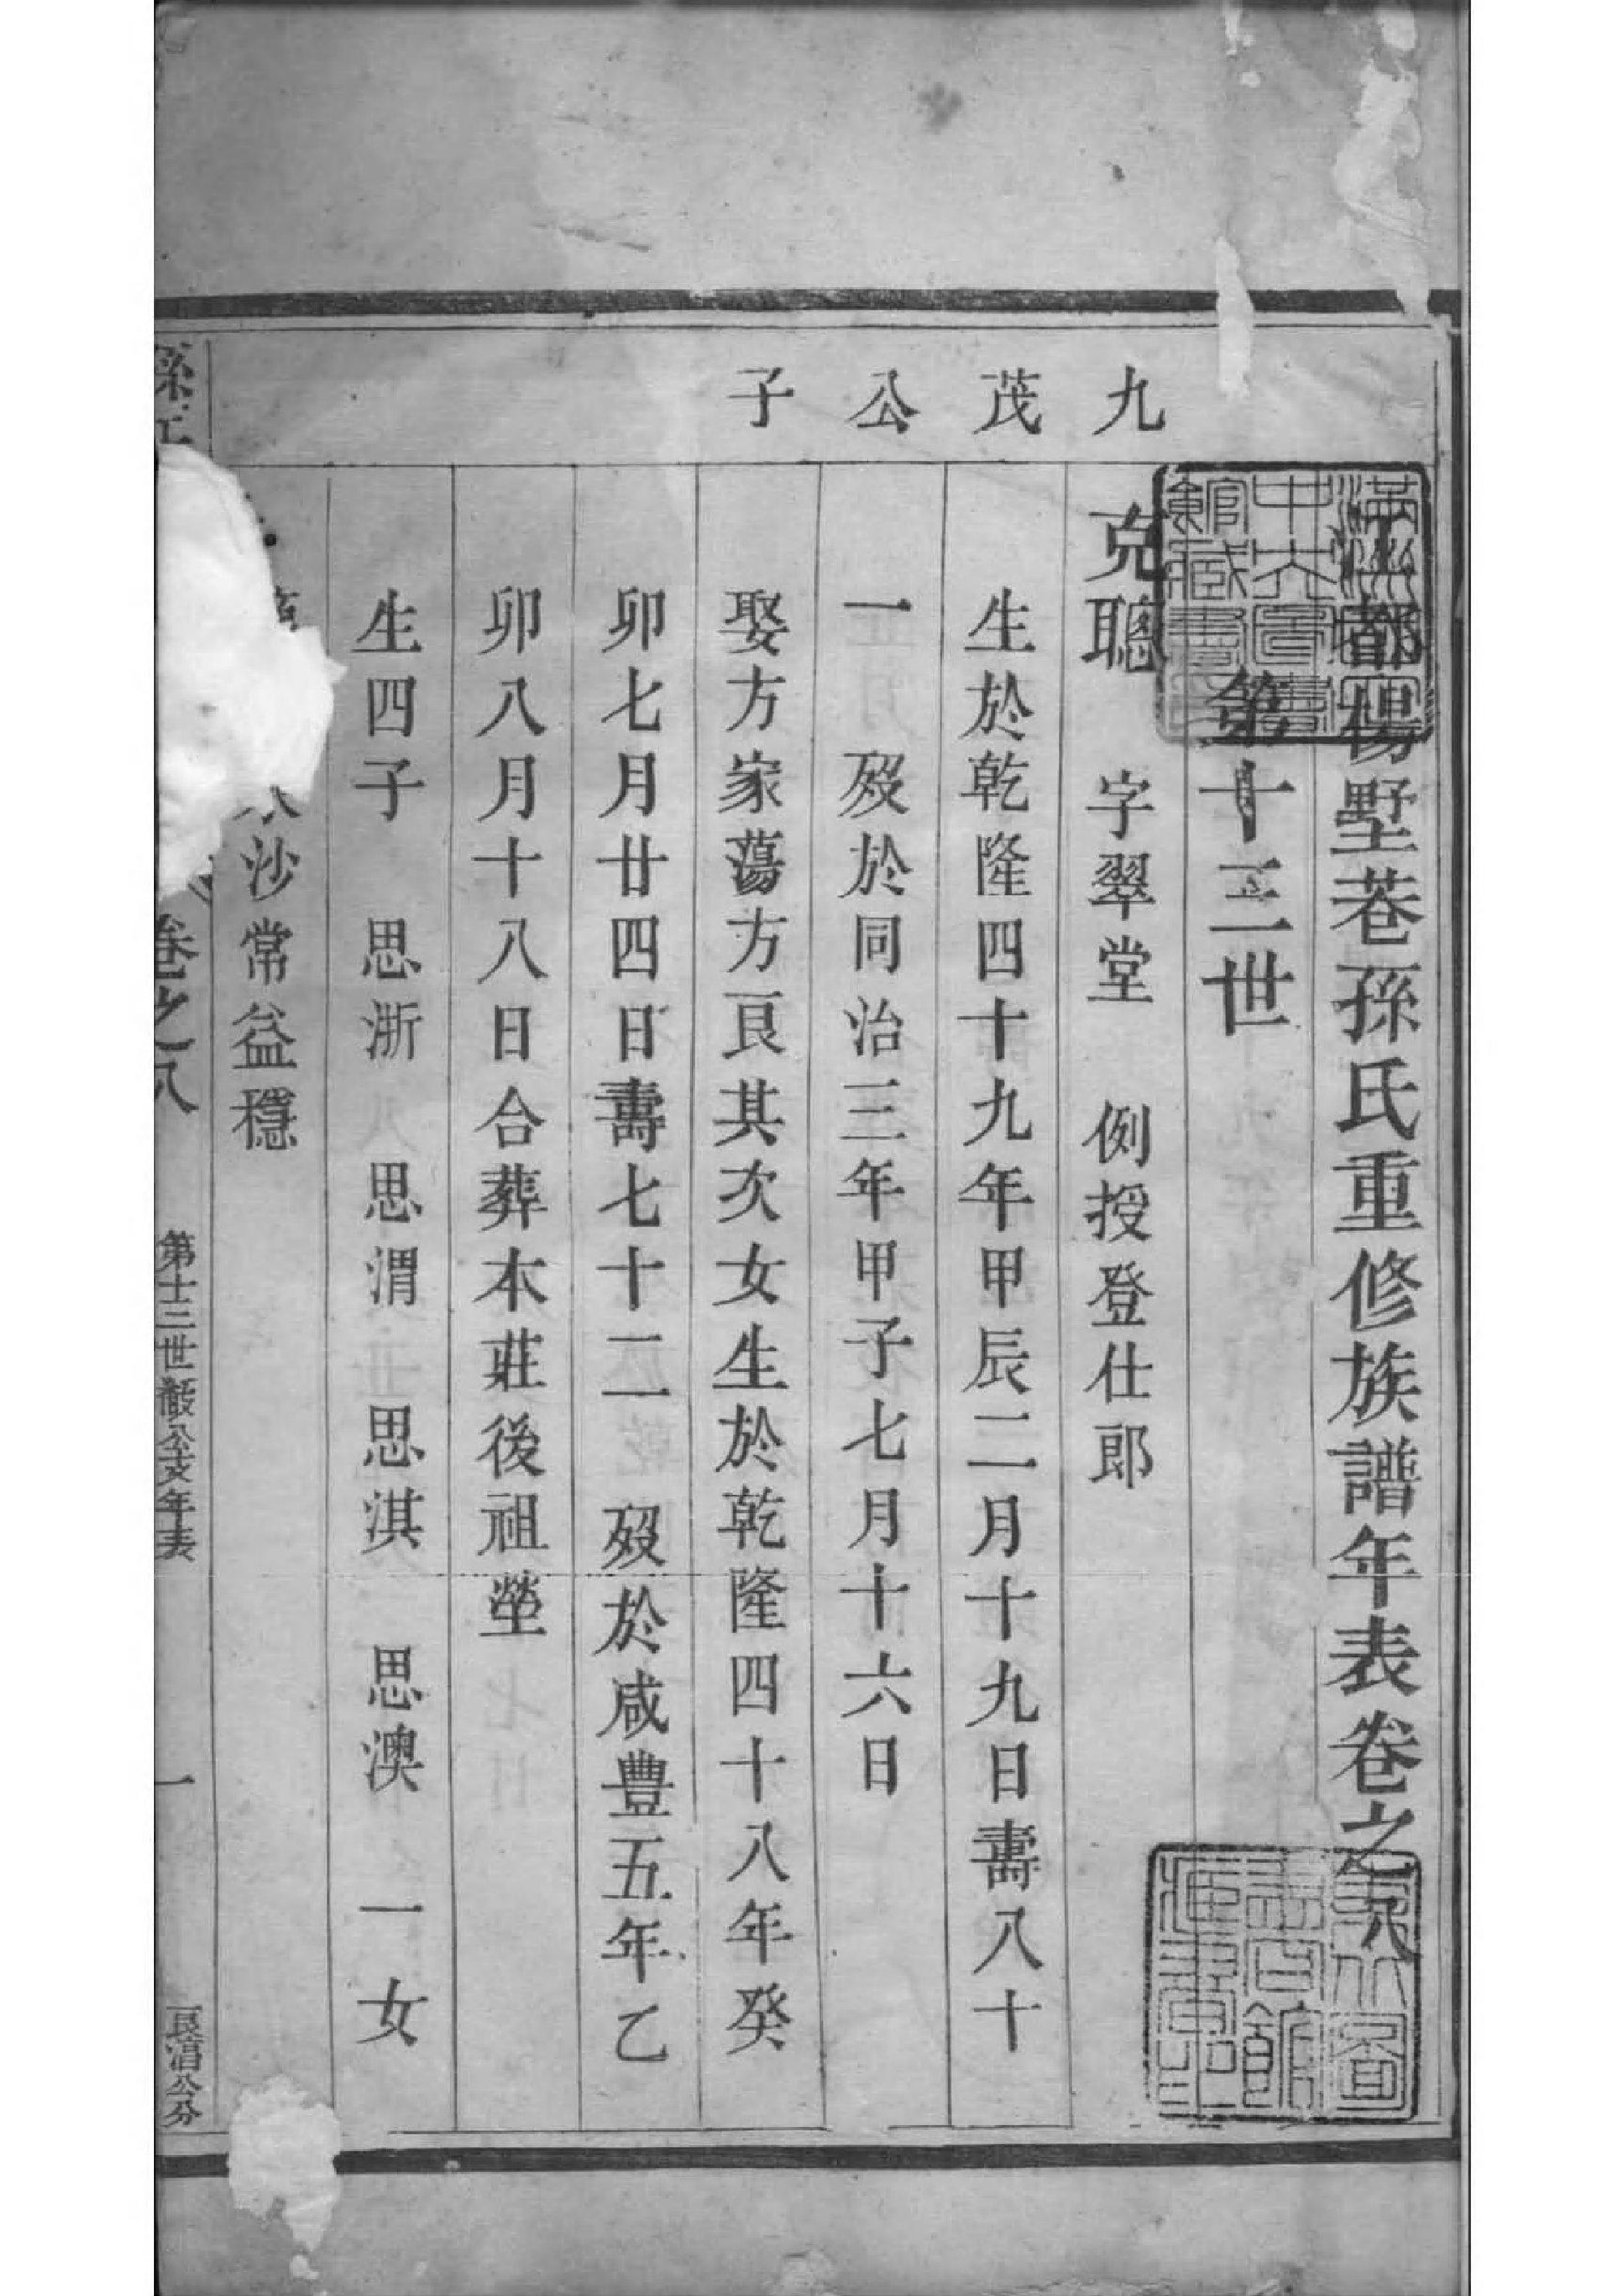 江都楊墅巷孫氏重修族譜年表卷之八
第十三世
九茂公子
克聰 字翠堂 例授登仕郎
生於乾隆四十九年甲辰二月十九日壽八十
一 歿於同治三年甲子七月十六日
娶方家蕩方艮其次女生於乾隆四十八年癸
卯七月廿四日壽七十二 歿於咸豐五年乙
卯八月十八日合葬本莊後祖塋
生四子 思浙 思渭 思淇 思澳 一女
沙常益穩
孫
卷之八
第十三世 公支年表
一
長淯公分
滿洲中央圖書館藏書
館藏書